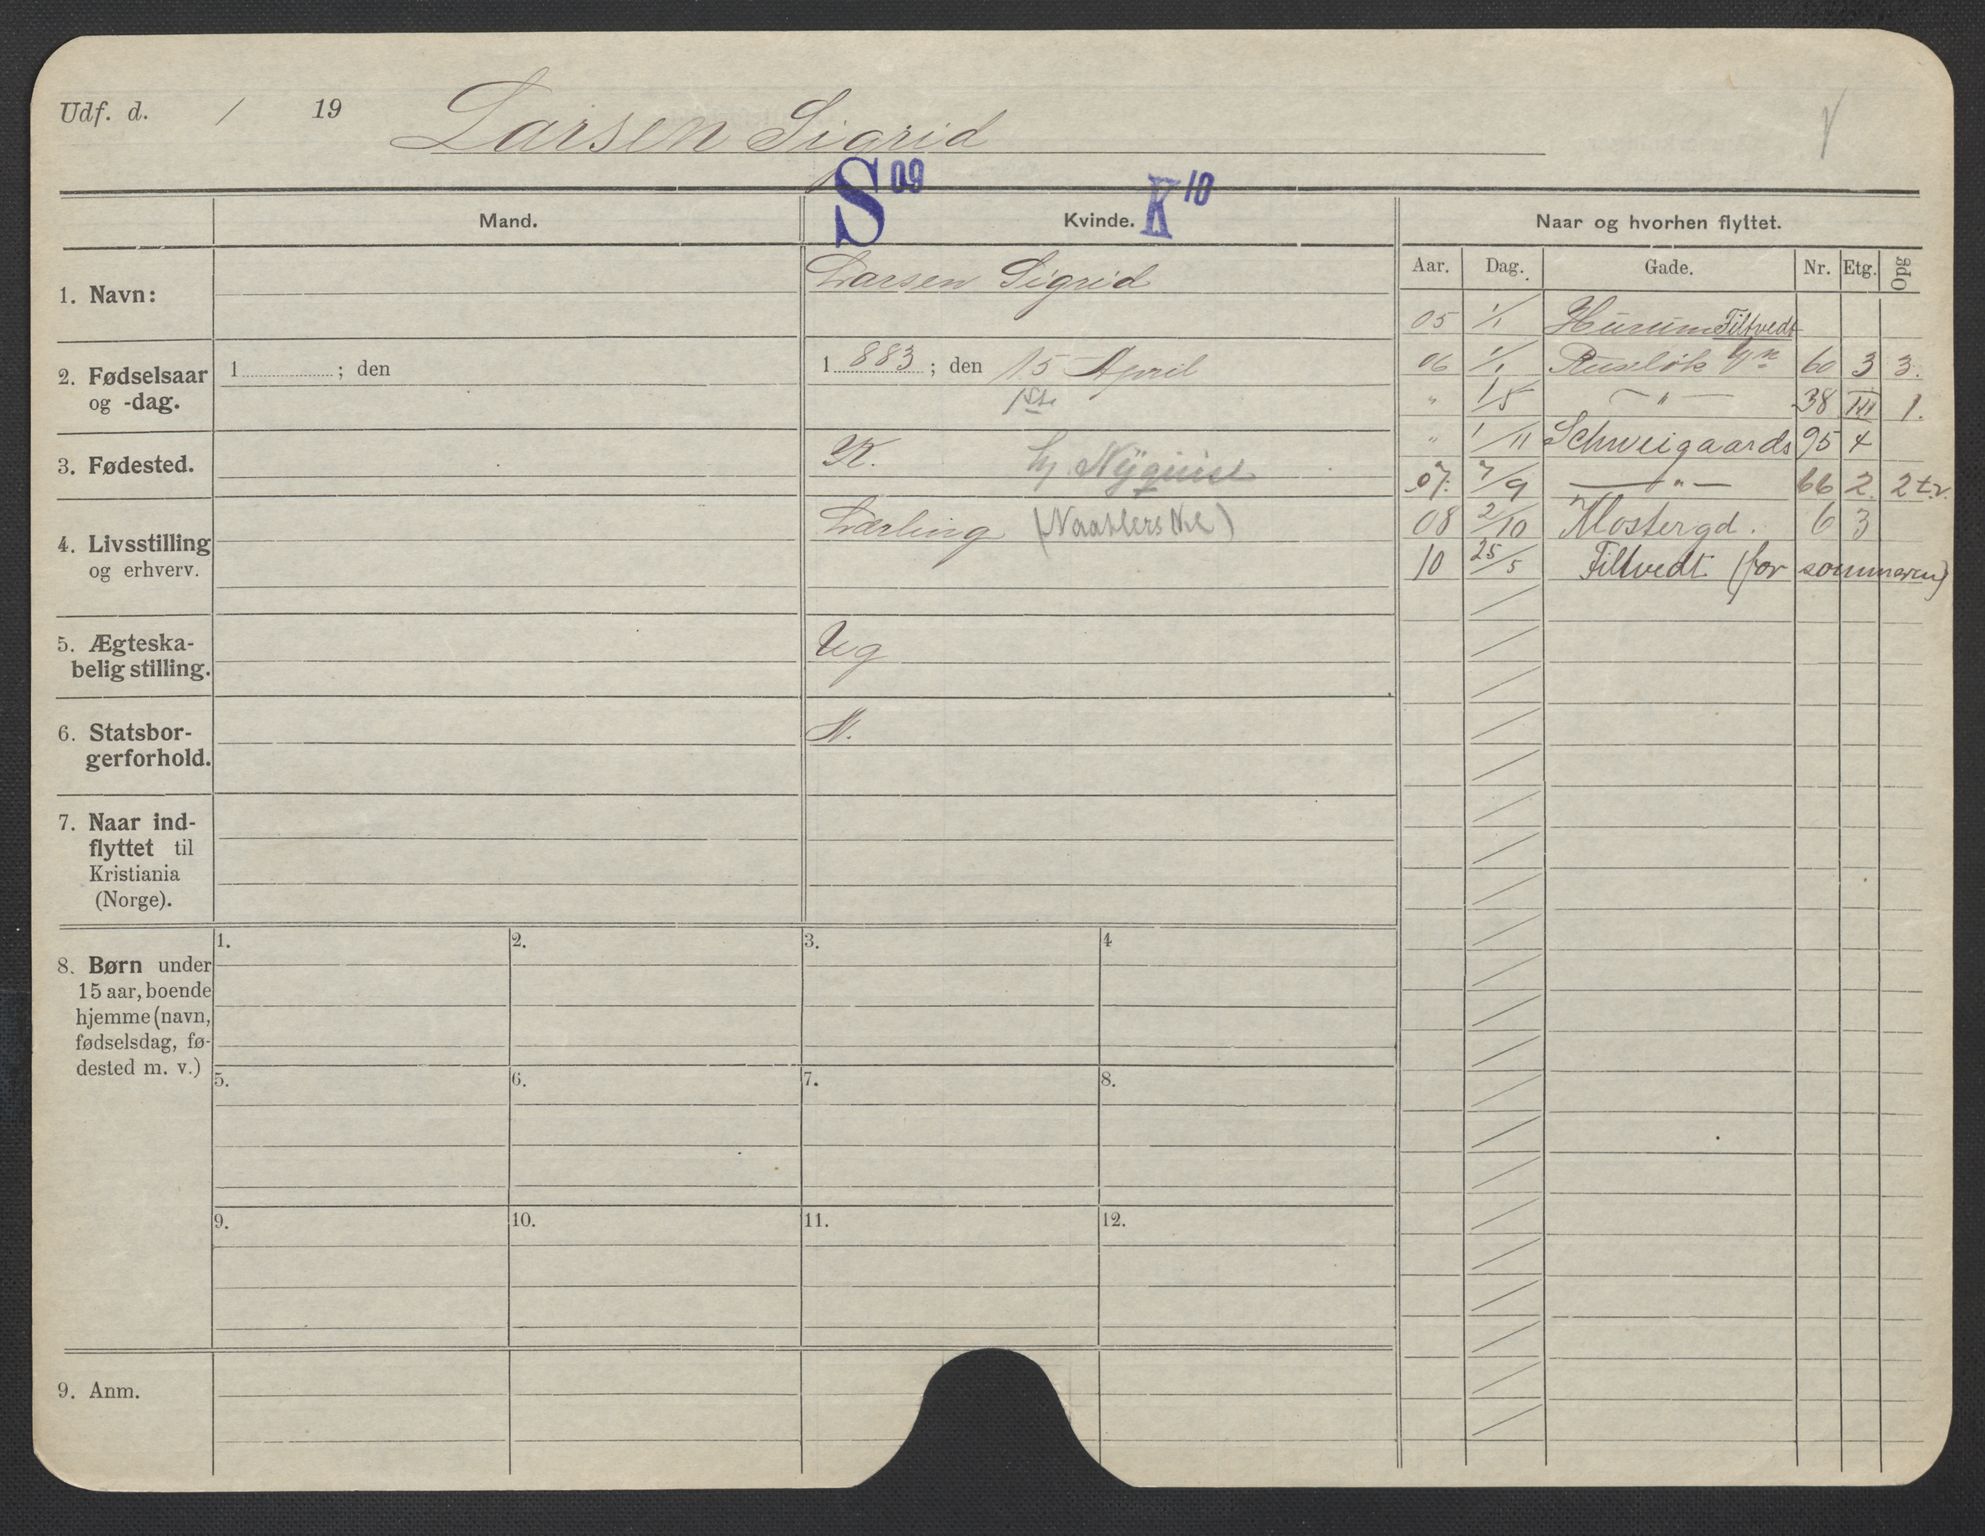 Udf. d. / 19 Larsen Sigrid
S 09 K 10
Mand. Kvinde. Naar og hvorhen flyttet.
Aar. Dag. Gade. Nr. Etg. Opg
1. Navn: Larsen Sigrid
05 1/1 Hurum Filtvedt
2. Fødselsaar og -dag. 1 ; den 1 883 ; den 15 April
06 1/1 Ruseløk 60 3 3.
1ste
" 1/5 — " — 38 III 1.
" 1/11 Schweigaards 95 4
3. Fødested. K. Hj. Nyquist
07. 7/9 — " — 66 2. 2 t.v.
4. Livsstilling og erhverv. Lærling
08 2/10 Klostergd. 6 3
10 25/5 Filtvedt (for sommeren)
5. Ægteska-
belig stilling. Ug
6. Statsbor-
gerforhold. N.
7. Naar ind-
flyttet til
Kristiania
(Norge).
1. 2. 3. 4
8. Børn under
15 aar, boende
hjemme (navn,
fødselsdag, fø-
dested m. v.)
5. 6. 7. 8.
9. 10. 11. 12.
9. Anm.